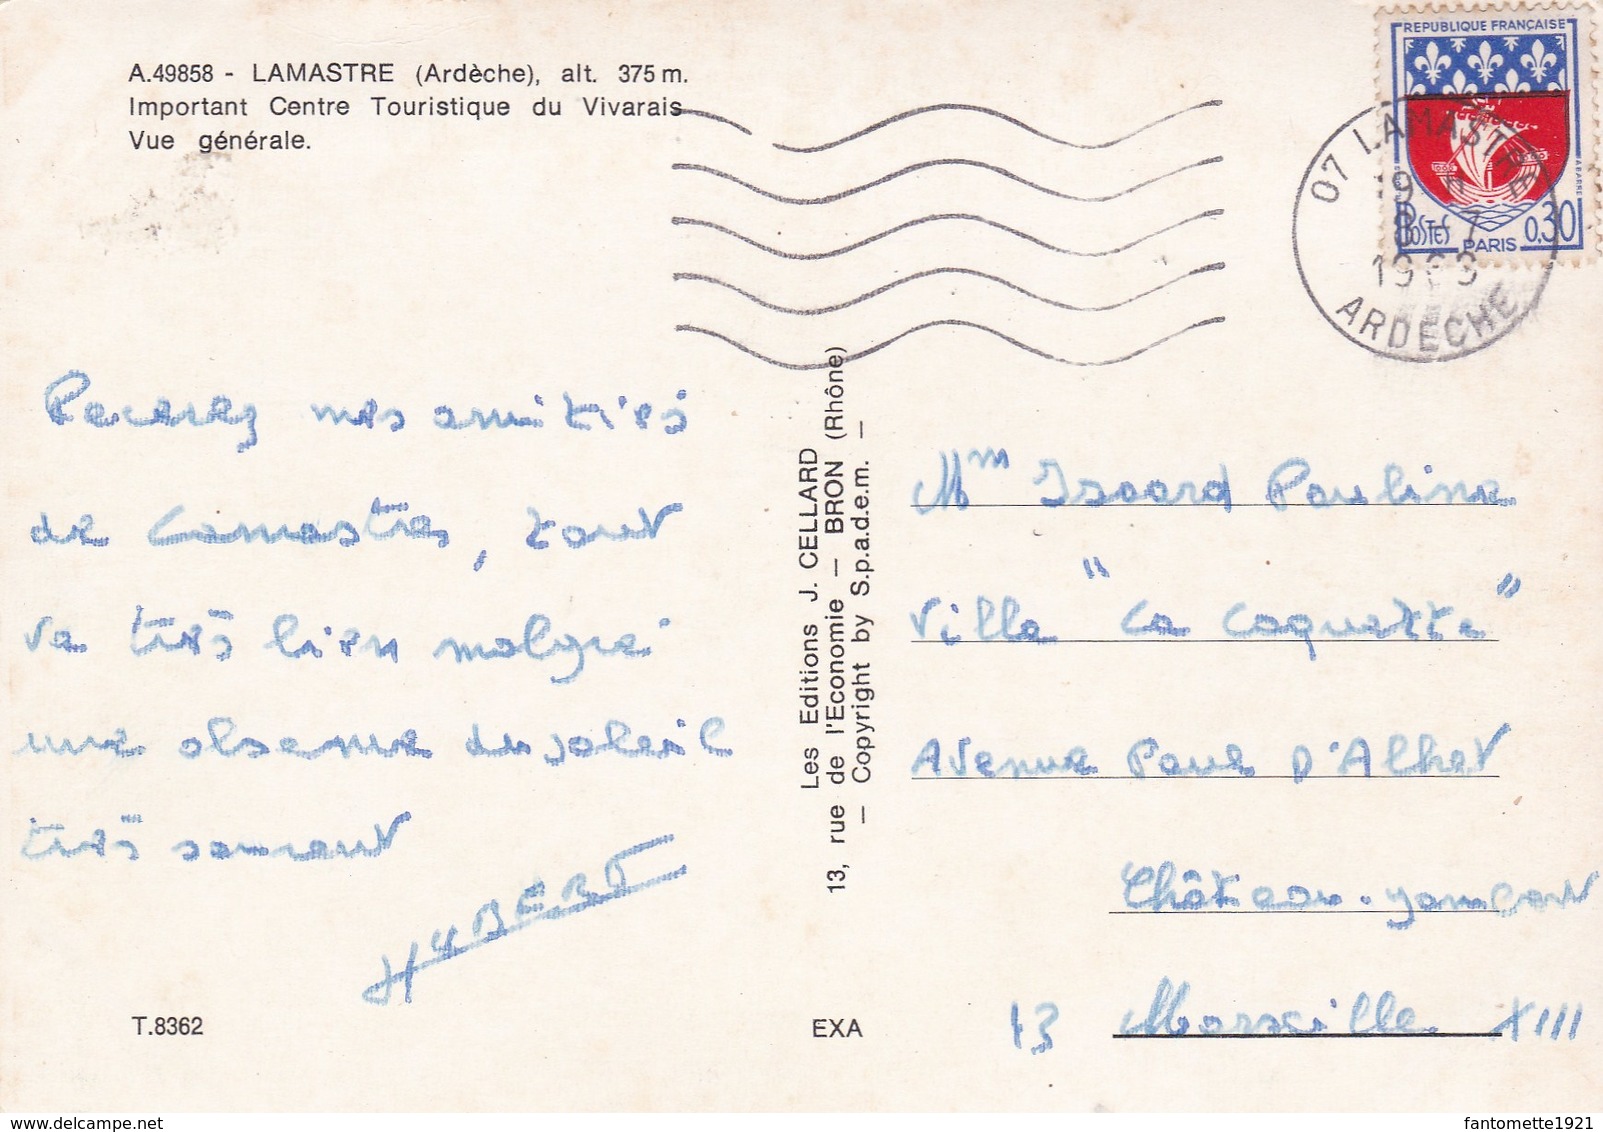 A.49858 - LAMASTRE (Ardèche), alt. 375 m.
Important Centre Touristique du Vivarais
Vue générale.
REPUBLIQUE FRANÇAISE
POSTES PARIS 0,30
07 LAMASTRE
ARDECHE
Recevez mes amitiés
de Lamastre, tout
va très bien malgré
une absence du soleil
très souvent
HUBERT
Les Editions J. CELLARD
13, rue de l'Economie - BRON (Rhône)
- Copyright by S.p.a.d.e.m. -
Mm Isoard Pauline
Villa "La Coquette"
Avenue Paul D'Albret
Château-Gombert
13 Marseille XIII
T.8362
EXA
fantomette1921